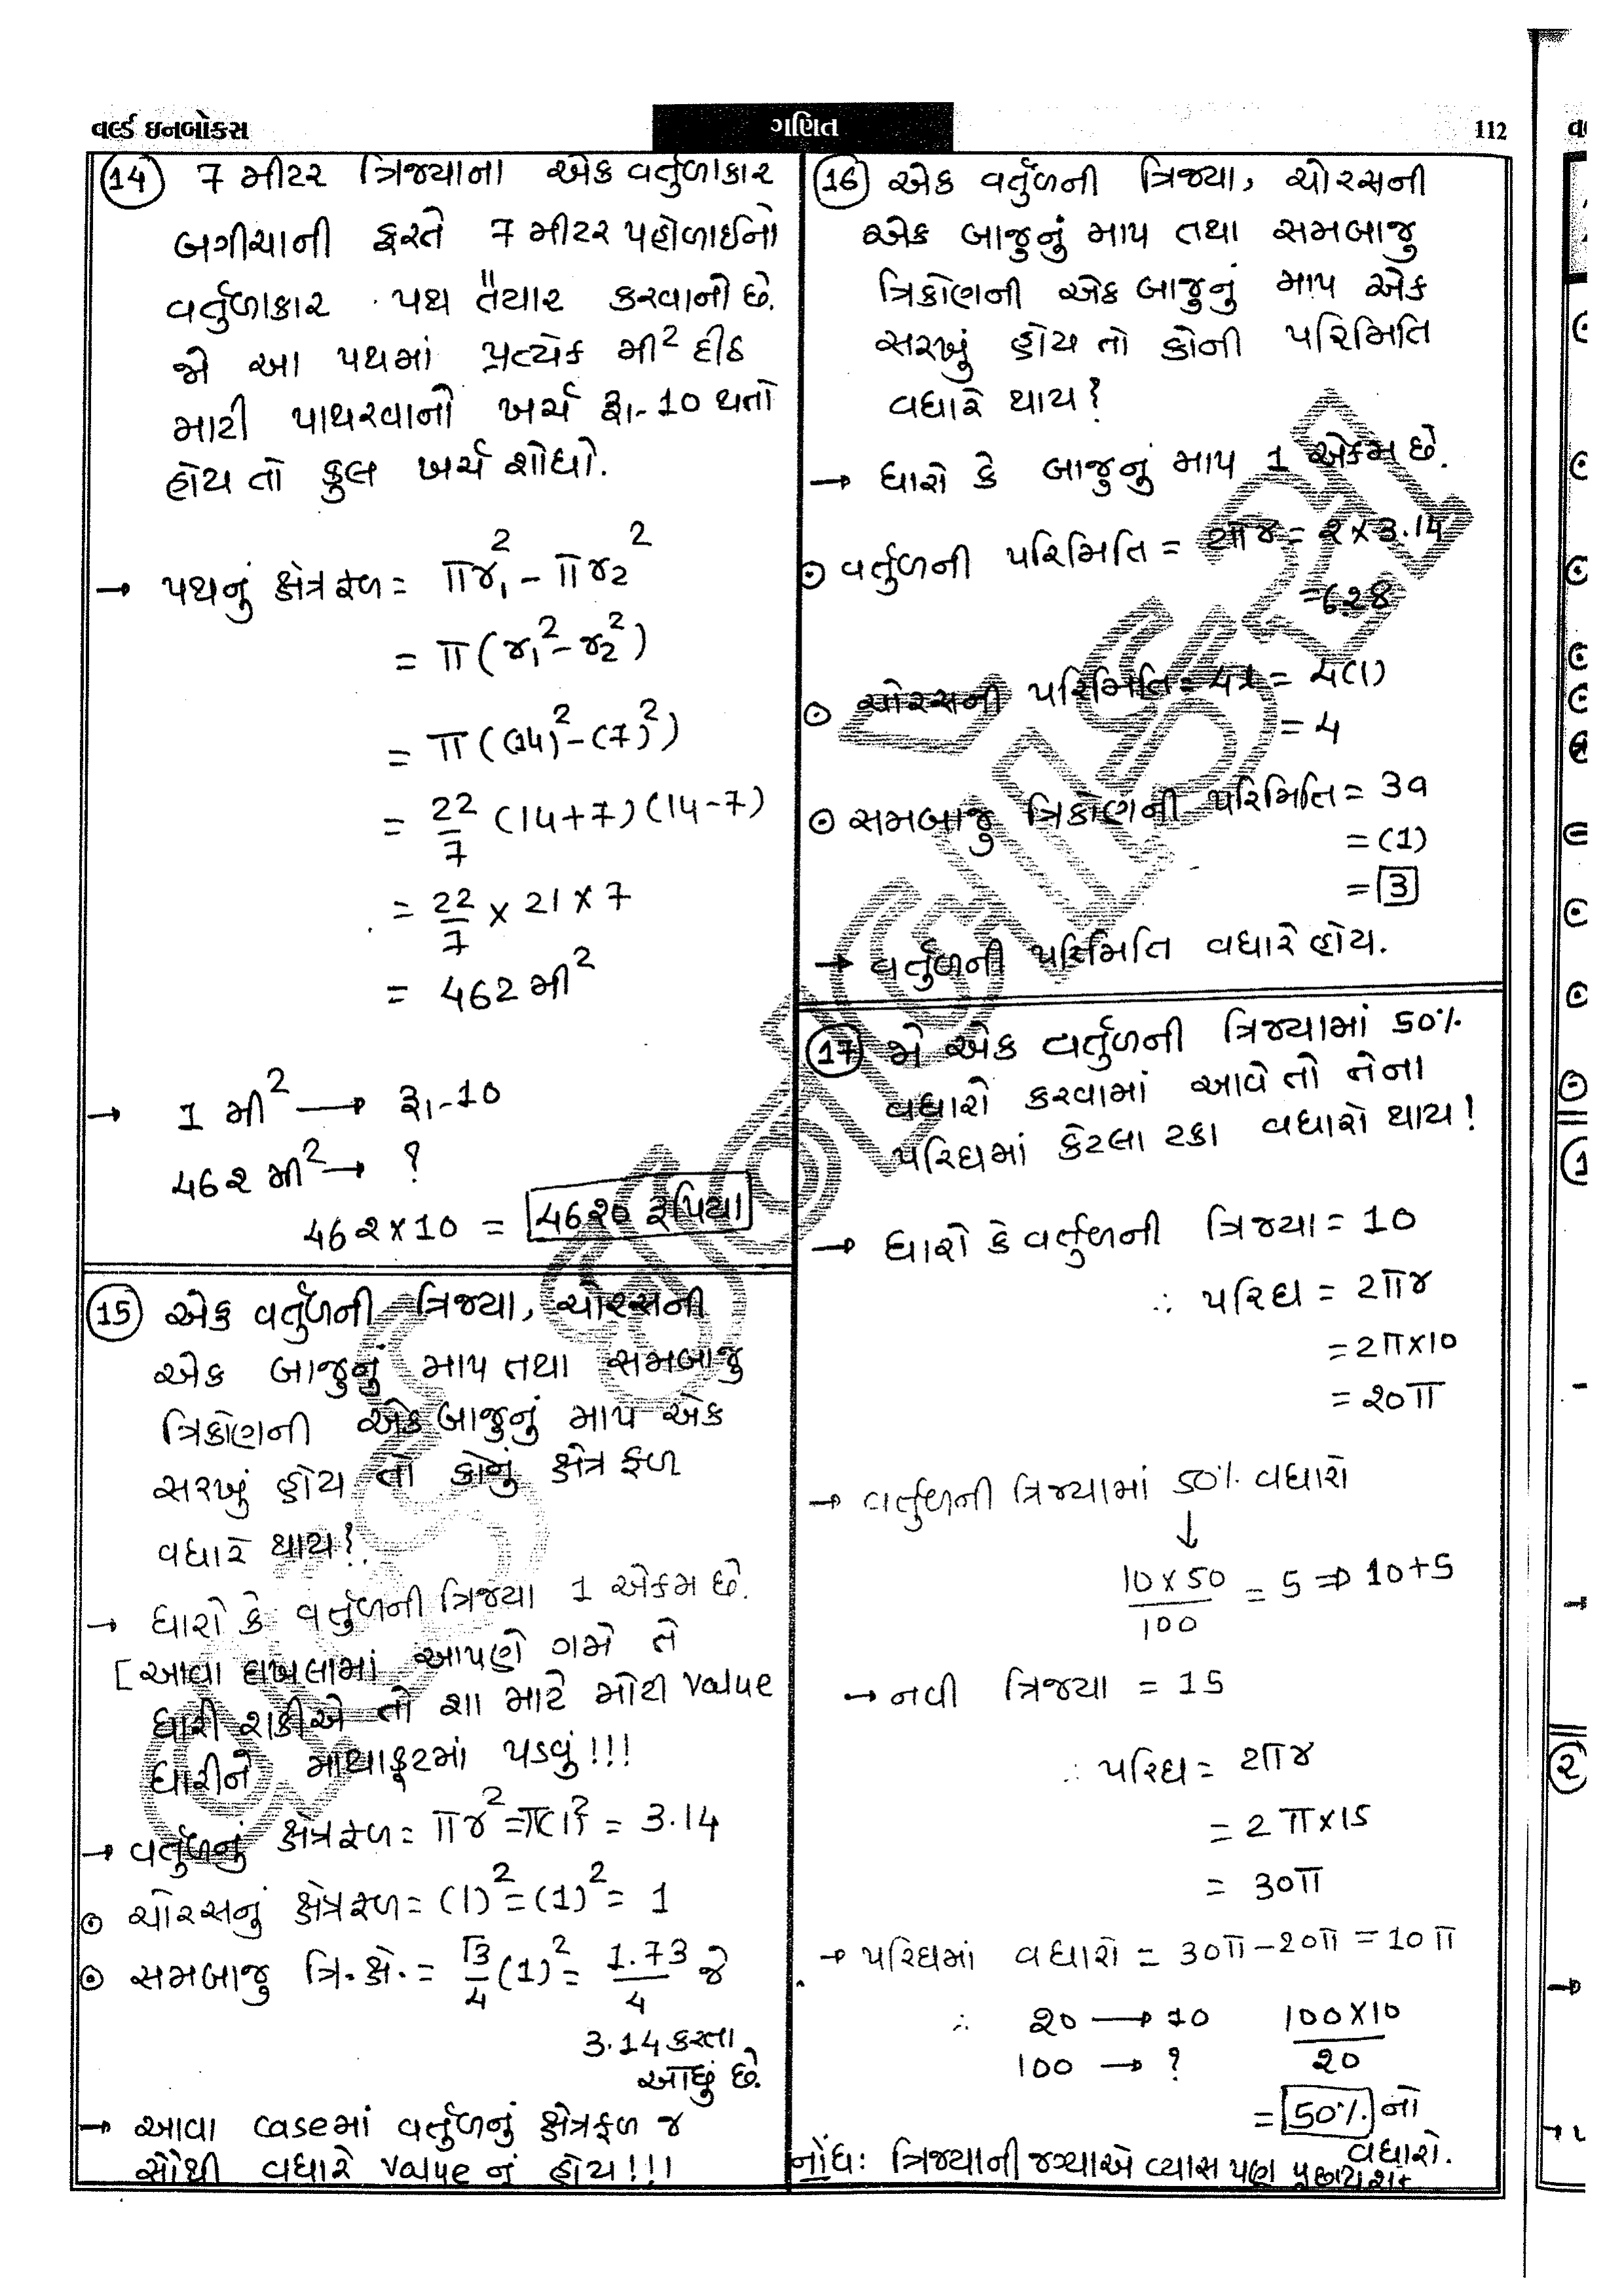 વર્લ્ડ ઇનબોક્સ
ગણિત
112
(14) 7 મીટર ત્રિજ્યાના એક વર્તુળાકાર
બગીચાની ફરતે 7 મીટર પહોળાઈનો
વર્તુળાકાર પથ તૈયાર કરવાનો છે.
જો આ પથમાં પ્રત્યેક મી² દીઠ
માટી પાથરવાનો ખર્ચ રૂ।.10 થતો
હોય તો કુલ ખર્ચ શોધો.
→ પથનું ક્ષેત્રફળ = πr₁² - πr₂²
= π(r₁² - r₂²)
= π((14)² - (7)²)
= 22/7 (14+7) (14-7)
= 22/7 × 21 × 7
= 462 મી²
→ 1 મી² → રૂ।.10
462 મી² → ?
462×10 = 4620 રૂપિયા
(15) એક વર્તુળની ત્રિજ્યા, ચોરસની
એક બાજુનું માપ તથા સમબાજુ
ત્રિકોણની એક બાજુનું માપ એક
સરખું હોય તો કોનું ક્ષેત્રફળ
વધારે થાય?
→ ધારો કે વર્તુળની ત્રિજ્યા 1 એકમ છે.
[આવા દાખલામાં આપણે ગમે તે
ધારી શકીએ તો શા માટે મોટી value
ધારીને માથાકૂટમાં પડવું!!!
→ વર્તુળનું ક્ષેત્રફળ = πr² = π(1)² = 3.14
⊙ ચોરસનું ક્ષેત્રફળ = (l)² = (1)² = 1
⊙ સમબાજુ ત્રિ.ક્ષે. = √3/4 (1)² = 1.73/4 જે
3.14 કરતા
ઓછું છે.
→ આવા caseમાં વર્તુળનું ક્ષેત્રફળ જ
સૌથી વધારે value નું હોય!!!
(16) એક વર્તુળની ત્રિજ્યા, ચોરસની
એક બાજુનું માપ તથા સમબાજુ
ત્રિકોણની એક બાજુનું માપ એક
સરખું હોય તો કોની પરિમિતિ
વધારે થાય?
→ ધારો કે બાજુનું માપ 1 એકમ છે.
⊙ વર્તુળની પરિમિતિ = 2πr = 2×3.14
= 6.28
⊙ ચોરસની પરિમિતિ = 4l = 4(1)
= 4
⊙ સમબાજુ ત્રિકોણની પરિમિતિ = 3a
= (1)
= 3
→ વર્તુળની પરિમિતિ વધારે હોય.
(17) જો એક વર્તુળની ત્રિજ્યામાં 50%
વધારો કરવામાં આવે તો તેના
પરિઘમાં કેટલા ટકા વધારો થાય!
→ ધારો કે વર્તુળની ત્રિજ્યા = 10
∴ પરિઘ = 2πr
= 2π×10
= 20π
→ વર્તુળની ત્રિજ્યામાં 50% વધારો
↓
10×50/100 = 5 ⇒ 10+5
→ નવી ત્રિજ્યા = 15
∴ પરિઘ = 2πr
= 2π×15
= 30π
→ પરિઘમાં વધારો = 30π-20π = 10π
∴ 20 → 10 100×10/20
100 → ?
= 50% નો
વધારો.
નોંધ: ત્રિજ્યાની જગ્યાએ વ્યાસ પણ